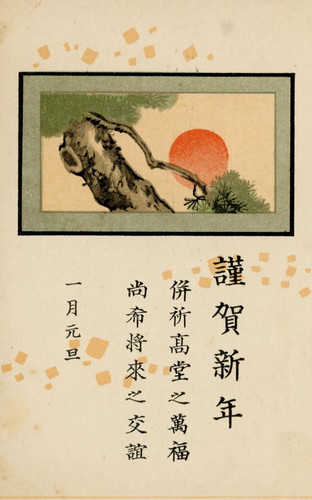 謹賀新年
併祈髙堂之萬福
尚希将來之交誼
一月元旦